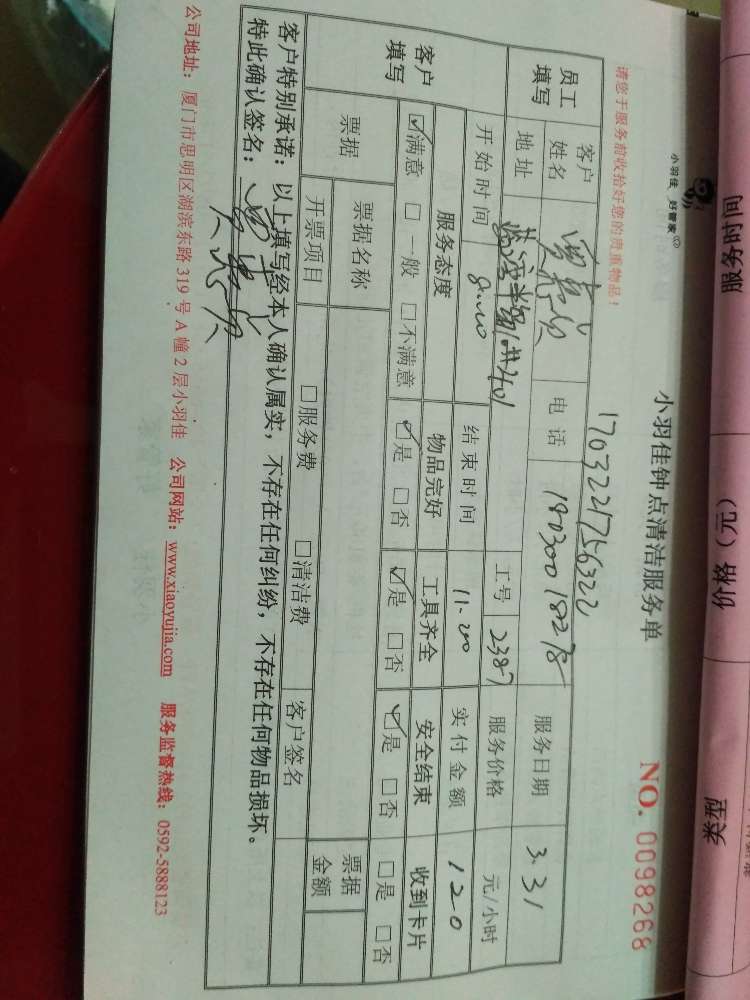 服务时间
价格（元）
类型
小羽佳 好管家
小羽佳钟点清洁服务单
NO. 0098268
请您于服务前收拾好您的贵重物品！
170322175632
员工填写
客户姓名
电话 18030018278
服务日期 3.31
地址
401
工号 2387
服务价格 元/小时
客户填写
开始时间 8:00
结束时间 11:00
实付金额 120
服务态度 物品完好 工具齐全 安全结束 收到卡片
☑满意 □一般 □不满意 ☑是 □否 ☑是 □否 ☑是 □否 □是 □否
票据
票据名称
客户签名
票据金额
开票项目 □服务费 □清洁费
客户特别承诺：以上填写经本人确认属实，不存在任何纠纷，不存在任何物品损坏。
特此确认签名：
公司地址：厦门市思明区湖滨东路319号A幢2层小羽佳 公司网站：www.xiaoyujia.com 服务监督热线：0592-5888123